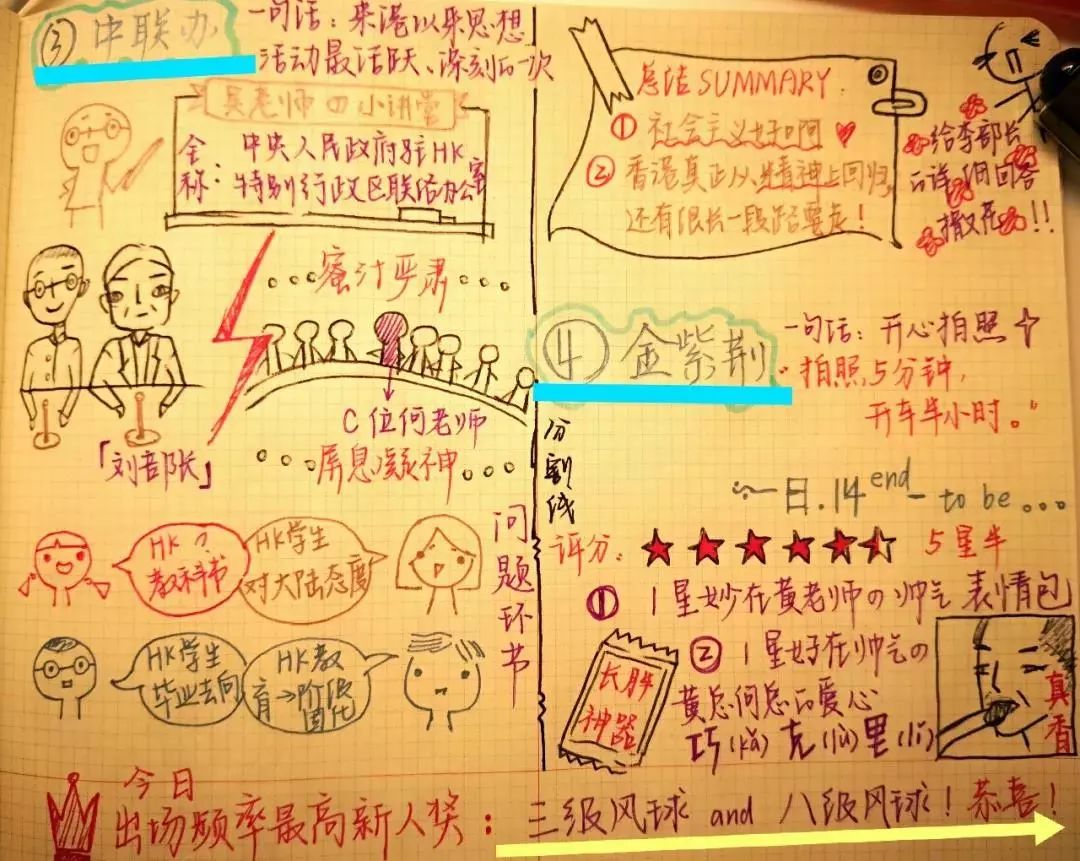 ③ 中联办
一句话：来港以来思想
活动最活跃、深刻的一次
吴老师の小讲堂
全称：中央人民政府驻HK
特别行政区联络办公室
...蜜汁严肃...
C位何老师
...屏息凝神...
「刘部长」
问题环节
HK の
教科书
HK学生
对大陆态度
HK学生
毕业去向
HK教
育→阶级
固化
总结 SUMMARY：
① 社会主义好啊
② 香港真正从精神上回归，
还有很长一段路要走！
给李部长
的详细回答
撒花!!
④ 金紫荆
一句话：开心拍照
"拍照5分钟，
开车半小时。"
分割线
一日.14 end - to be...
评分：★★★★★ 5星半
① 1星妙在黄老师の帅气表情包
② 1星好在帅气の
黄总何总的爱心
巧(kǎ)克(lù)里(lǐ)
长胖
神器
真香
今日
出场频率最高新人奖：三级风球 and 八级风球！恭喜！